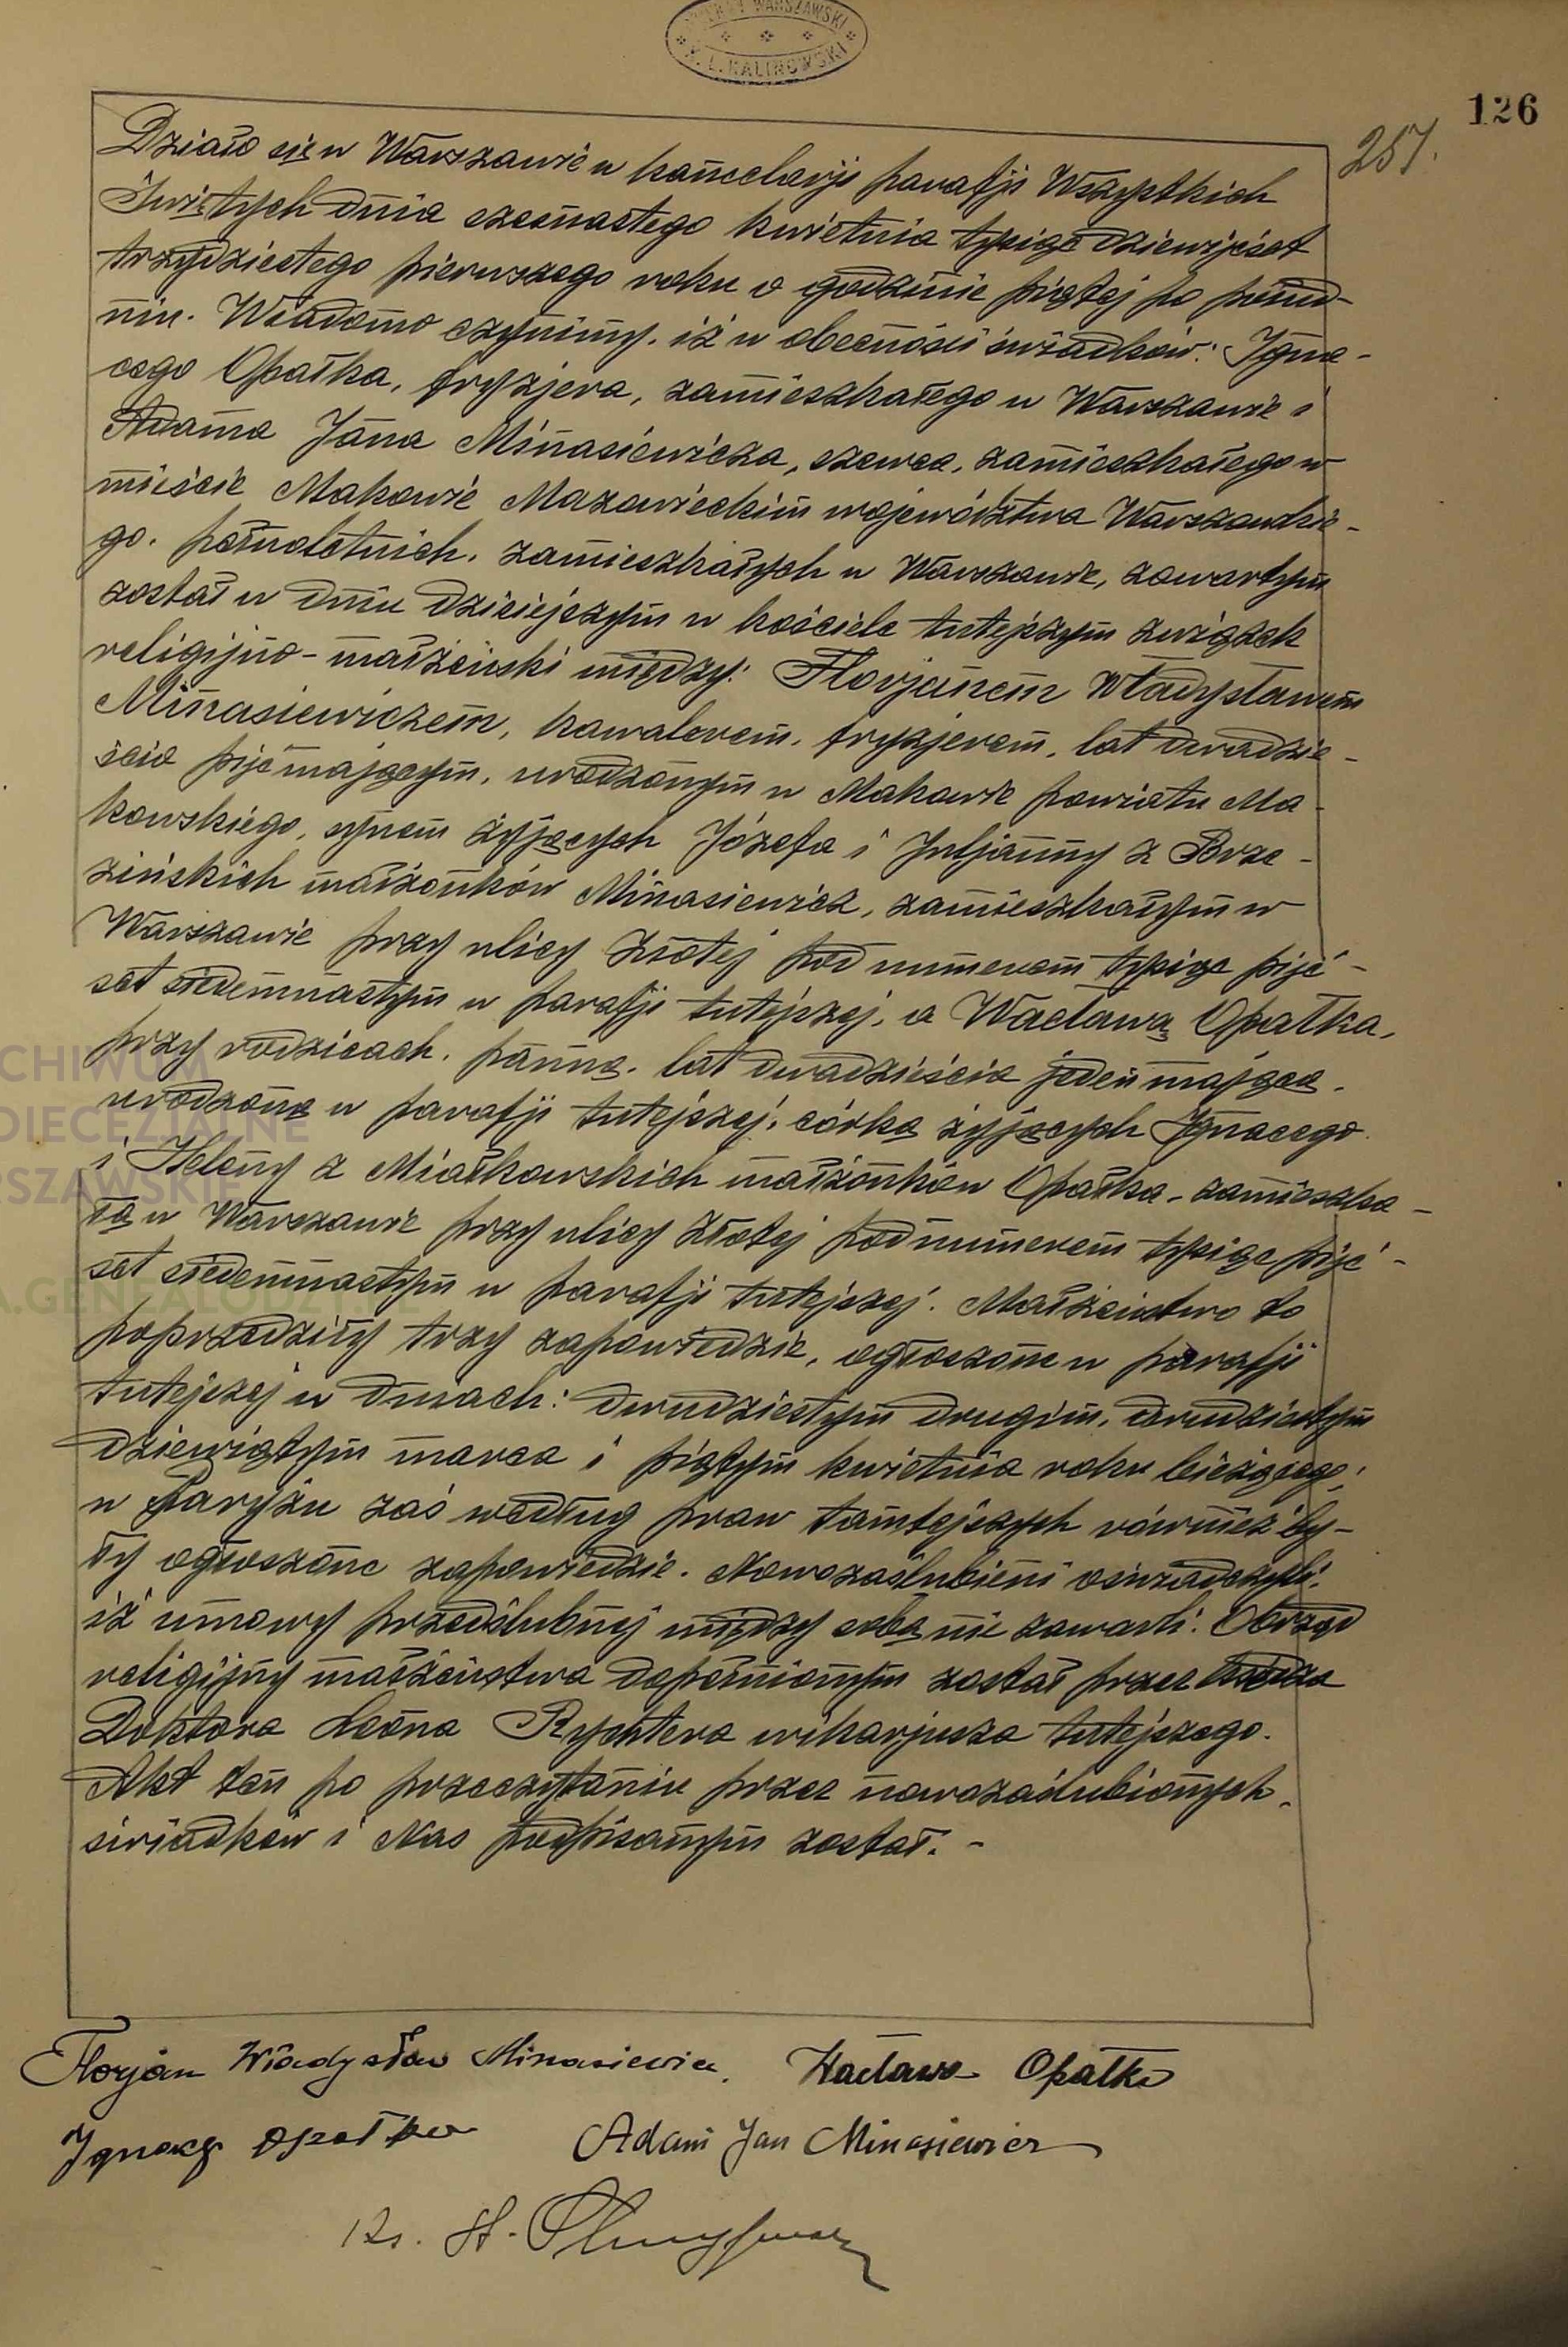 WARSZAWSKI
K. L. KALINOWSKI
126
257.
Działo się w Warszawie w kancelarji parafji Wszystkich
Świętych dnia szesnastego kwietnia tysiąc dziewięćset
trzydziestego pierwszego roku o godzinie piątej po połud-
niu. Wiadomo czynimy, iż w obecności świadków: Igna-
cego Opałka, fryzjera, zamieszkałego w Warszawie i
Adama Jana Minasiewicza, szewca, zamieszkałego w
mieście Makowie Mazowieckim województwa Warszawskie-
go, pełnoletnich, zamieszkałych w Warszawie, zawartym
został w dniu dzisiejszym w kościele tutejszym związek
religijno-małżeński między: Florjanem Władysławem
Minasiewiczem, kawalerem, fryzjerem, lat dwadzie-
ścia pięć mającym, urodzonym w Makowie powiatu Ma-
kowskiego, synem żyjących Józefa i Juljanny z Brze-
zińskich małżonków Minasiewicz, zamieszkałym w
Warszawie przy ulicy Złotej pod numerem tysiąc pięć-
set siedemnastym w parafji tutejszej, a Wacławą Opałka,
przy rodzicach, panną, lat dwadzieścia jeden mającą,
urodzoną w parafji tutejszej, córką żyjących Ignacego
i Heleny z Miałkowskich małżonków Opałka, zamieszka-
łą w Warszawie przy ulicy Złotej pod numerem tysiąc pięć-
set siedemnastym w parafji tutejszej. Małżeństwo to
poprzedziły trzy zapowiedzie, ogłoszone w parafji
tutejszej w dniach: dwudziestym drugim, dwudziestym
dziewiątym marca i piątym kwietnia roku bieżącego;
w Paryżu zaś według praw tamtejszych również by-
ły ogłoszone zapowiedzie. Nowozaślubieni oświadczyli,
iż umowy przedślubnej między sobą nie zawarli. Obrzęd
religijny małżeństwa dopełnionym został przez księdza
Doktora Leona Rychtera wikarjusza tutejszego.
Akt ten po przeczytaniu przez nowozaślubionych,
świadków i Nas podpisanym został. -
Florjan Władysław Minasiewicz. Wacława Opałka
Ignacy Opałka Adam Jan Minasiewicz
Ks. St.
ARCHIWUM
DIECEZJALNE
WARSZAWSKIE